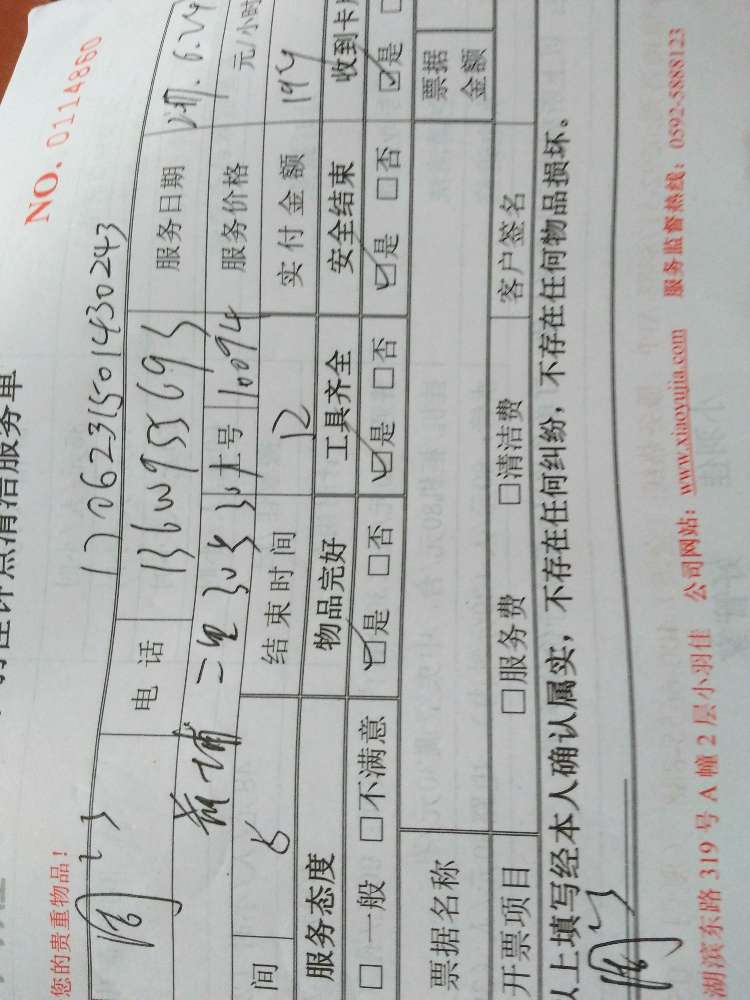 清洁服务单
NO. 0114860
您的贵重物品！
1706231501430243
电话 服务日期
二里 工号 10094 服务价格 元/小时
间 结束时间 12 实付金额 194
服务态度 物品完好 工具齐全 安全结束 收到卡
□ 一般 □不满意 ☑是 □否 ☑是 □否 ☑是 □否 ☑是
票据名称 票据金额
开票项目 □服务费 □清洁费 客户签名
以上填写经本人确认属实，不存在任何纠纷，不存在任何物品损坏。
湖滨东路 319 号 A 幢 2 层小羽佳 公司网站：www.xiaoyujia.com 服务监督热线：0592-5888123